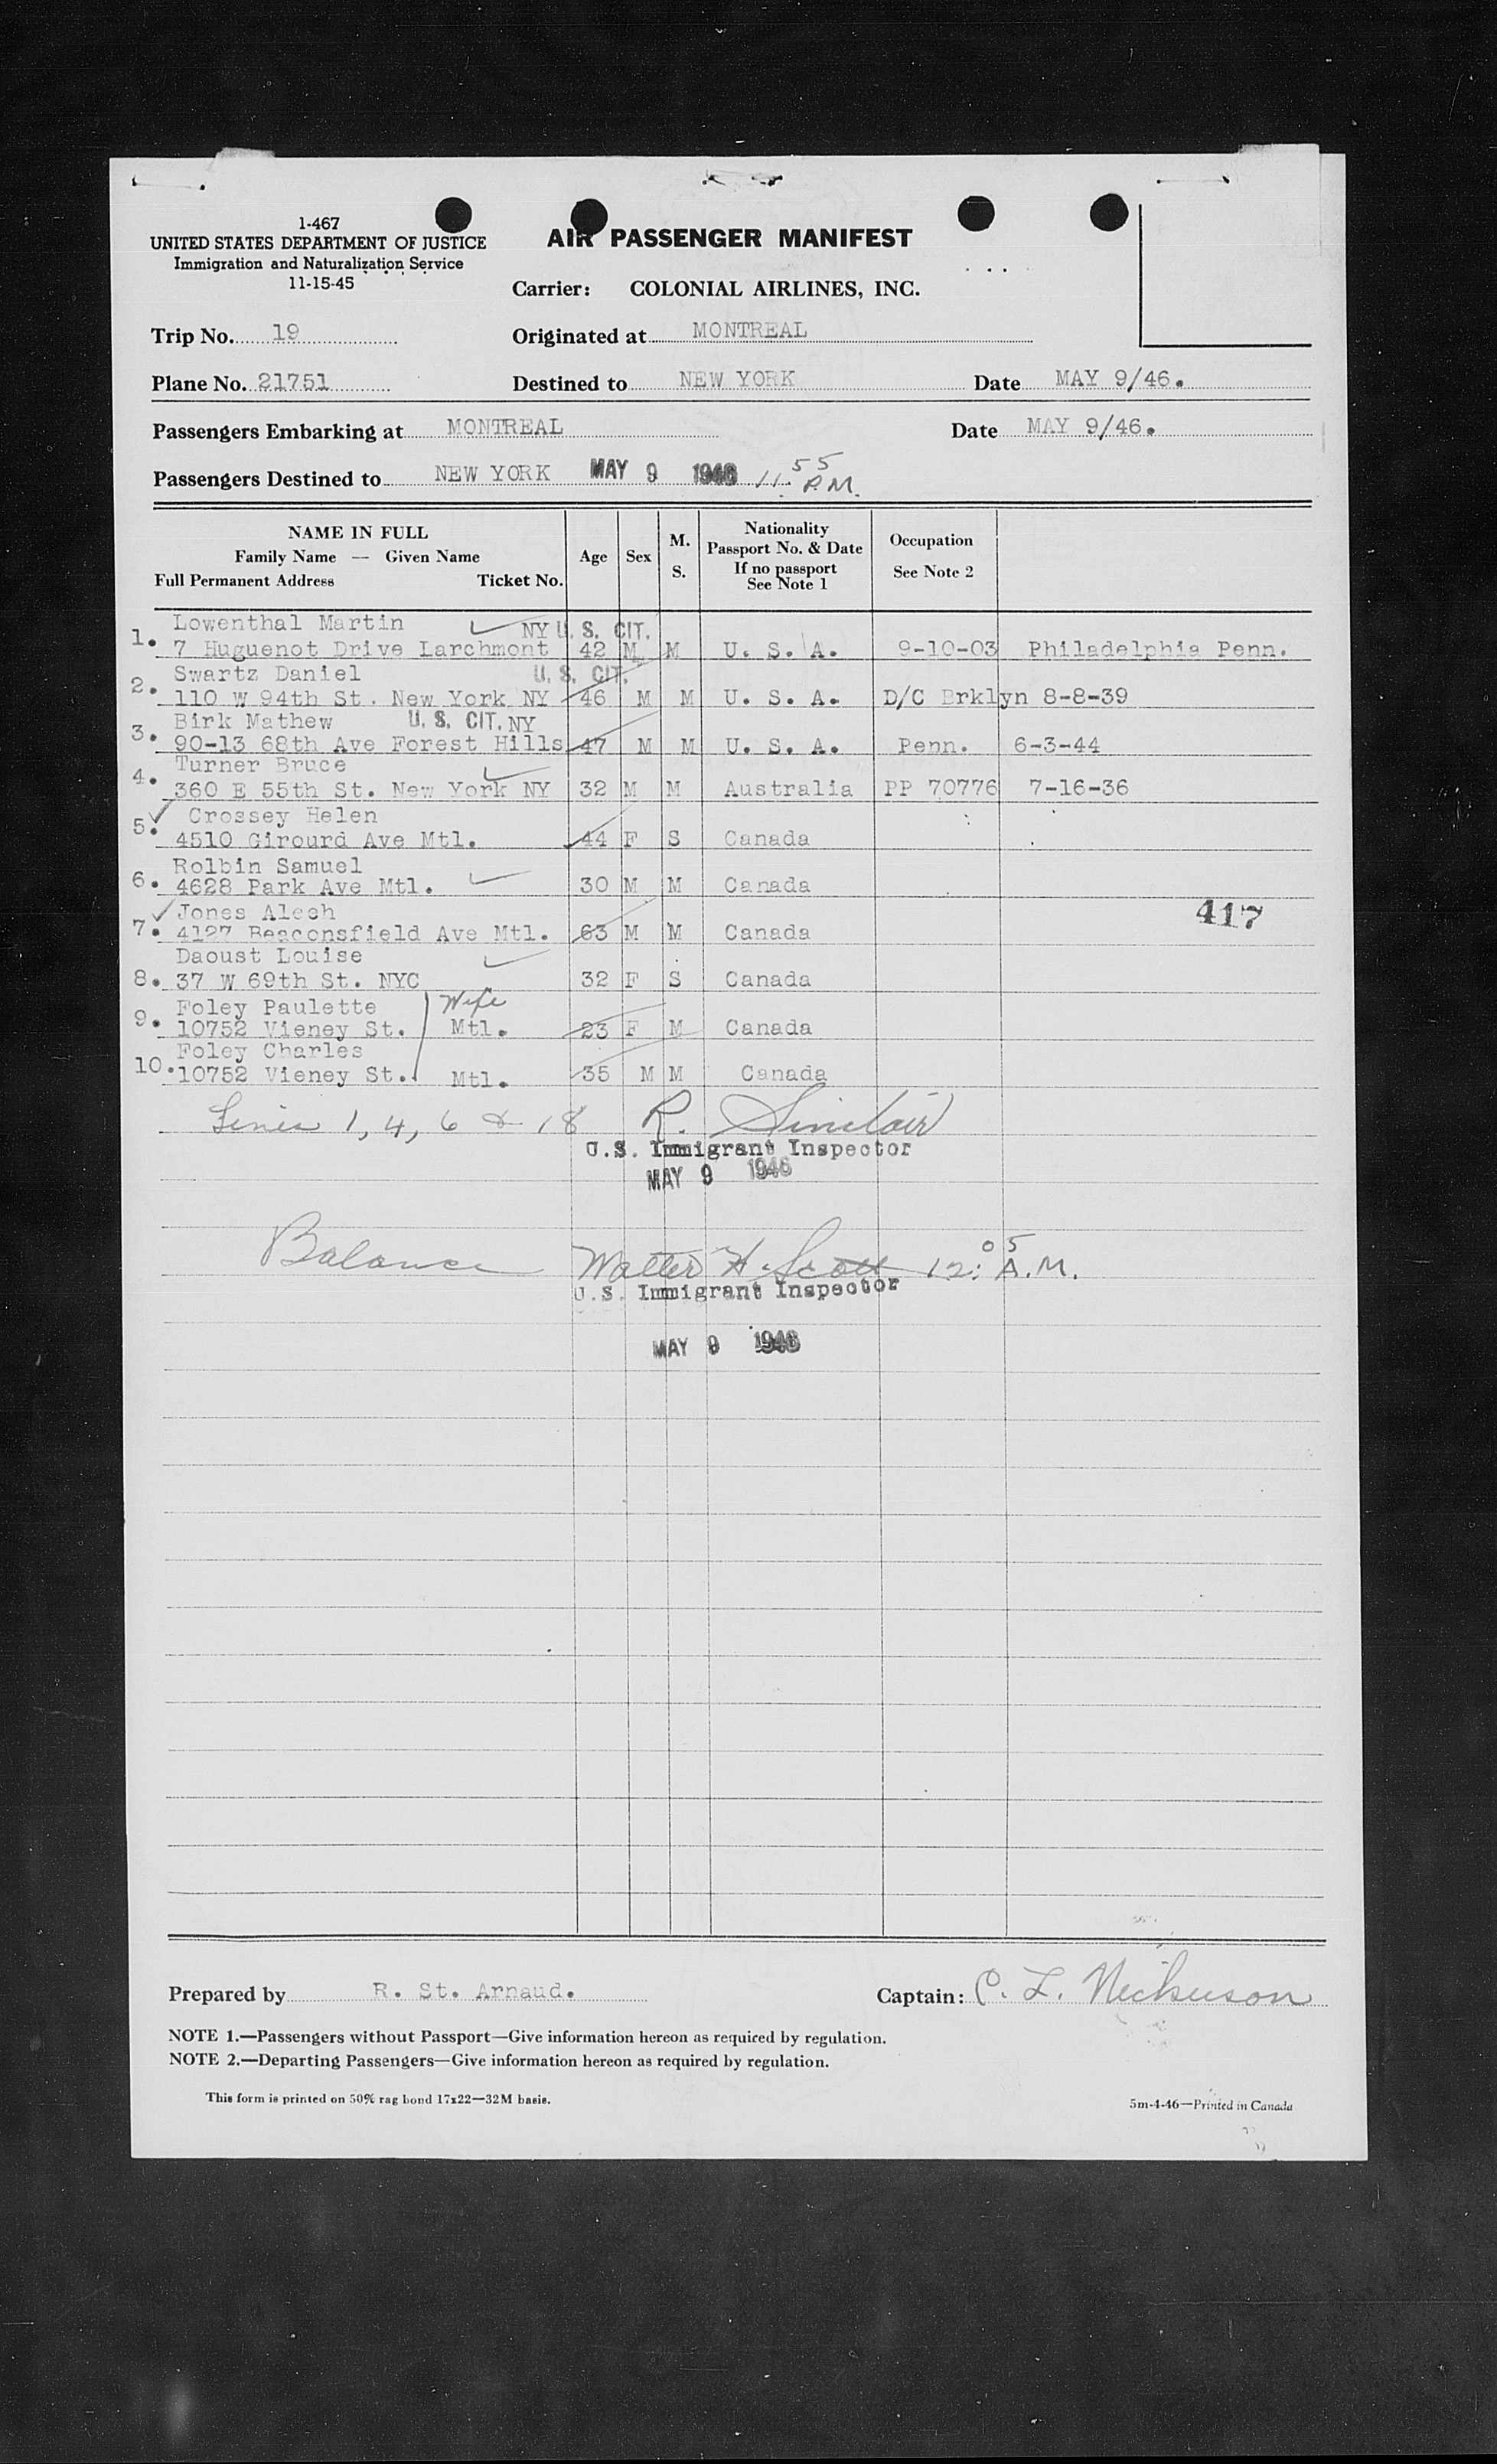 1-467
UNITED STATES DEPARTMENT OF JUSTICE
Immigration and Naturalization Service
11-15-45
AIR PASSENGER MANIFEST
Carrier: COLONIAL AIRLINES, INC.
Trip No. 19 Originated at MONTREAL
Plane No. 21751 Destined to NEW YORK Date MAY 9/46.
Passengers Embarking at MONTREAL Date MAY 9/46.
Passengers Destined to NEW YORK MAY 9 1946 11:55 P.M.
NAME IN FULL
Family Name — Given Name
Full Permanent Address Ticket No.
Age Sex M. S.
Nationality
Passport No. & Date
If no passport
See Note 1
Occupation
See Note 2
Lowenthal Martin NY U. S. CIT.
1. 7 Huguenot Drive Larchmont 42 M M U. S. A. 9-10-03 Philadelphia Penn.
Swartz Daniel U. S. CIT.
2. 110 W 94th St. New York NY 46 M M U. S. A. D/C Brklyn 8-8-39
Birk Mathew U. S. CIT. NY
3. 90-13 68th Ave Forest Hills 47 M M U. S. A. Penn. 6-3-44
Turner Bruce
4. 360 E 55th St. New York NY 32 M M Australia PP 70776 7-16-36
Crossey Helen
5. 4510 Girourd Ave Mtl. 44 F S Canada
Rolbin Samuel
6. 4628 Park Ave Mtl. 30 M M Canada
Jones Alech
7. 4127 Beaconsfield Ave Mtl. 63 M M Canada
417
Daoust Louise
8. 37 W 69th St. NYC 32 F S Canada
Foley Paulette Wife
9. 10752 Vieney St. Mtl. 23 F M Canada
Foley Charles
10. 10752 Vieney St. Mtl. 35 M M Canada
Lines 1, 4, 6 & 18 R. Sinclair
U.S. Immigrant Inspector
MAY 9 1946
Balance Walter H. Scott 12:05 A.M.
U.S. Immigrant Inspector
MAY 9 1946
Prepared by R. St. Arnaud. Captain: C. L.
NOTE 1.—Passengers without Passport—Give information hereon as required by regulation.
NOTE 2.—Departing Passengers—Give information hereon as required by regulation.
This form is printed on 50% rag bond 17x22—32M basis.
5m-4-46—Printed in Canada